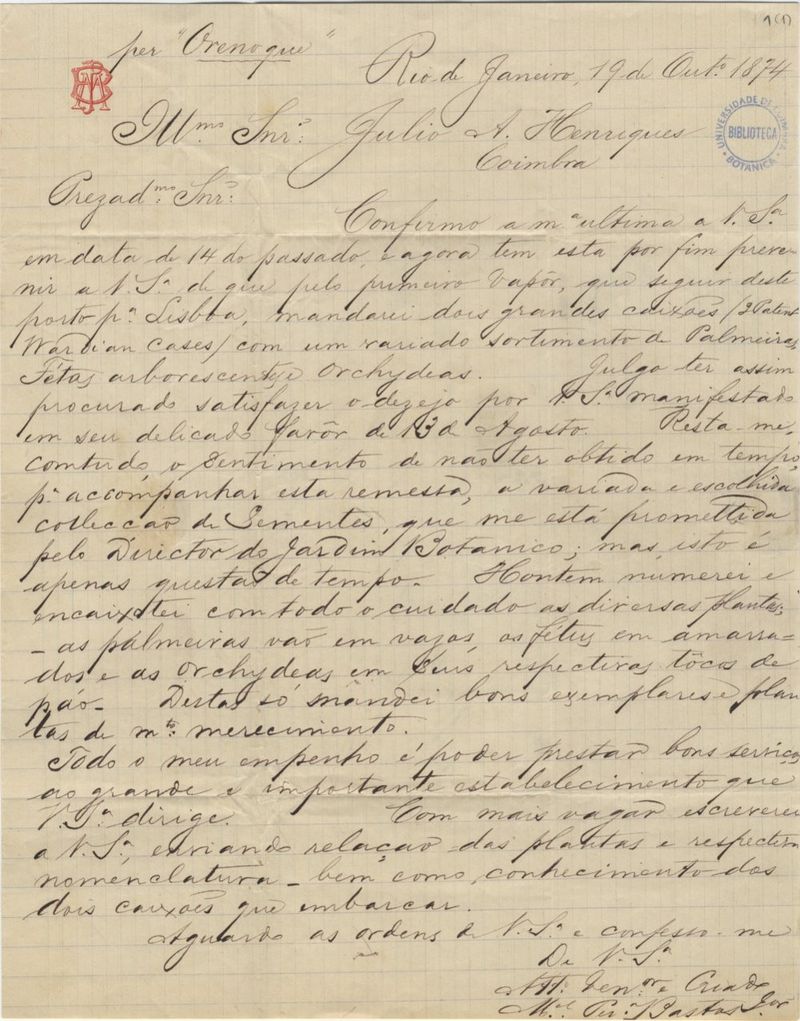 1(1)
per "Orenoque"
Rio de Janeiro, 19 de Outº 1874
Illmo Snr. Julio A. Henriques
Coimbra
UNIVERSIDADE DE COIMBRA
BIBLIOTECA
BOTANICA
Prezadmo Snr:
Confirmo a mª ultima a V. Sª
em data de 14 do passado, e agora tem esta por fim preve-
nir a V. Sª de que pelo primeiro vapôr, que seguir deste
porto pª Lisboa, mandarei dois grandes caixões /2 Patent
Wardian Cases/ com um variado sortimento de Palmeiras,
Fétos arborescentes e Orchydeas. Julgo ter assim
procurado satisfazer o dezejo por V. Sª manifestado
em seu delicado favôr de 13 de Agosto. Resta-me,
comtudo, o sentimento de não ter obtido em tempo,
pª accompanhar esta remessa, a variada e escolhida
collecção de Sementes, que me está promettida
pelo Director do Jardim Botanico; mas isto é
apenas questão de tempo. Hontem numerei e
encaixotei com todo o cuidado as diversas plantas;
- as palmeiras vão em vazos, os fétos em amarra-
dos e as Orchydeas em seus respectivos tócos de
páo. Destas só mandei bons exemplares e plan
tas de mto merecimento.
Todo o meu empenho é poder prestar bons serviços
ao grande e importante estabelecimento que
V. Sª dirige. Com mais vagar escreverei
a V. Sª, enviando relação das plantas e respectiva
nomenclatura - bem como, conhecimento dos
dois caixões que embarcar.
Aguardo as ordens de V. Sª e confesso-me
De V. Sª
Attº Venor e Criado
Mel Perª Bastos Jor